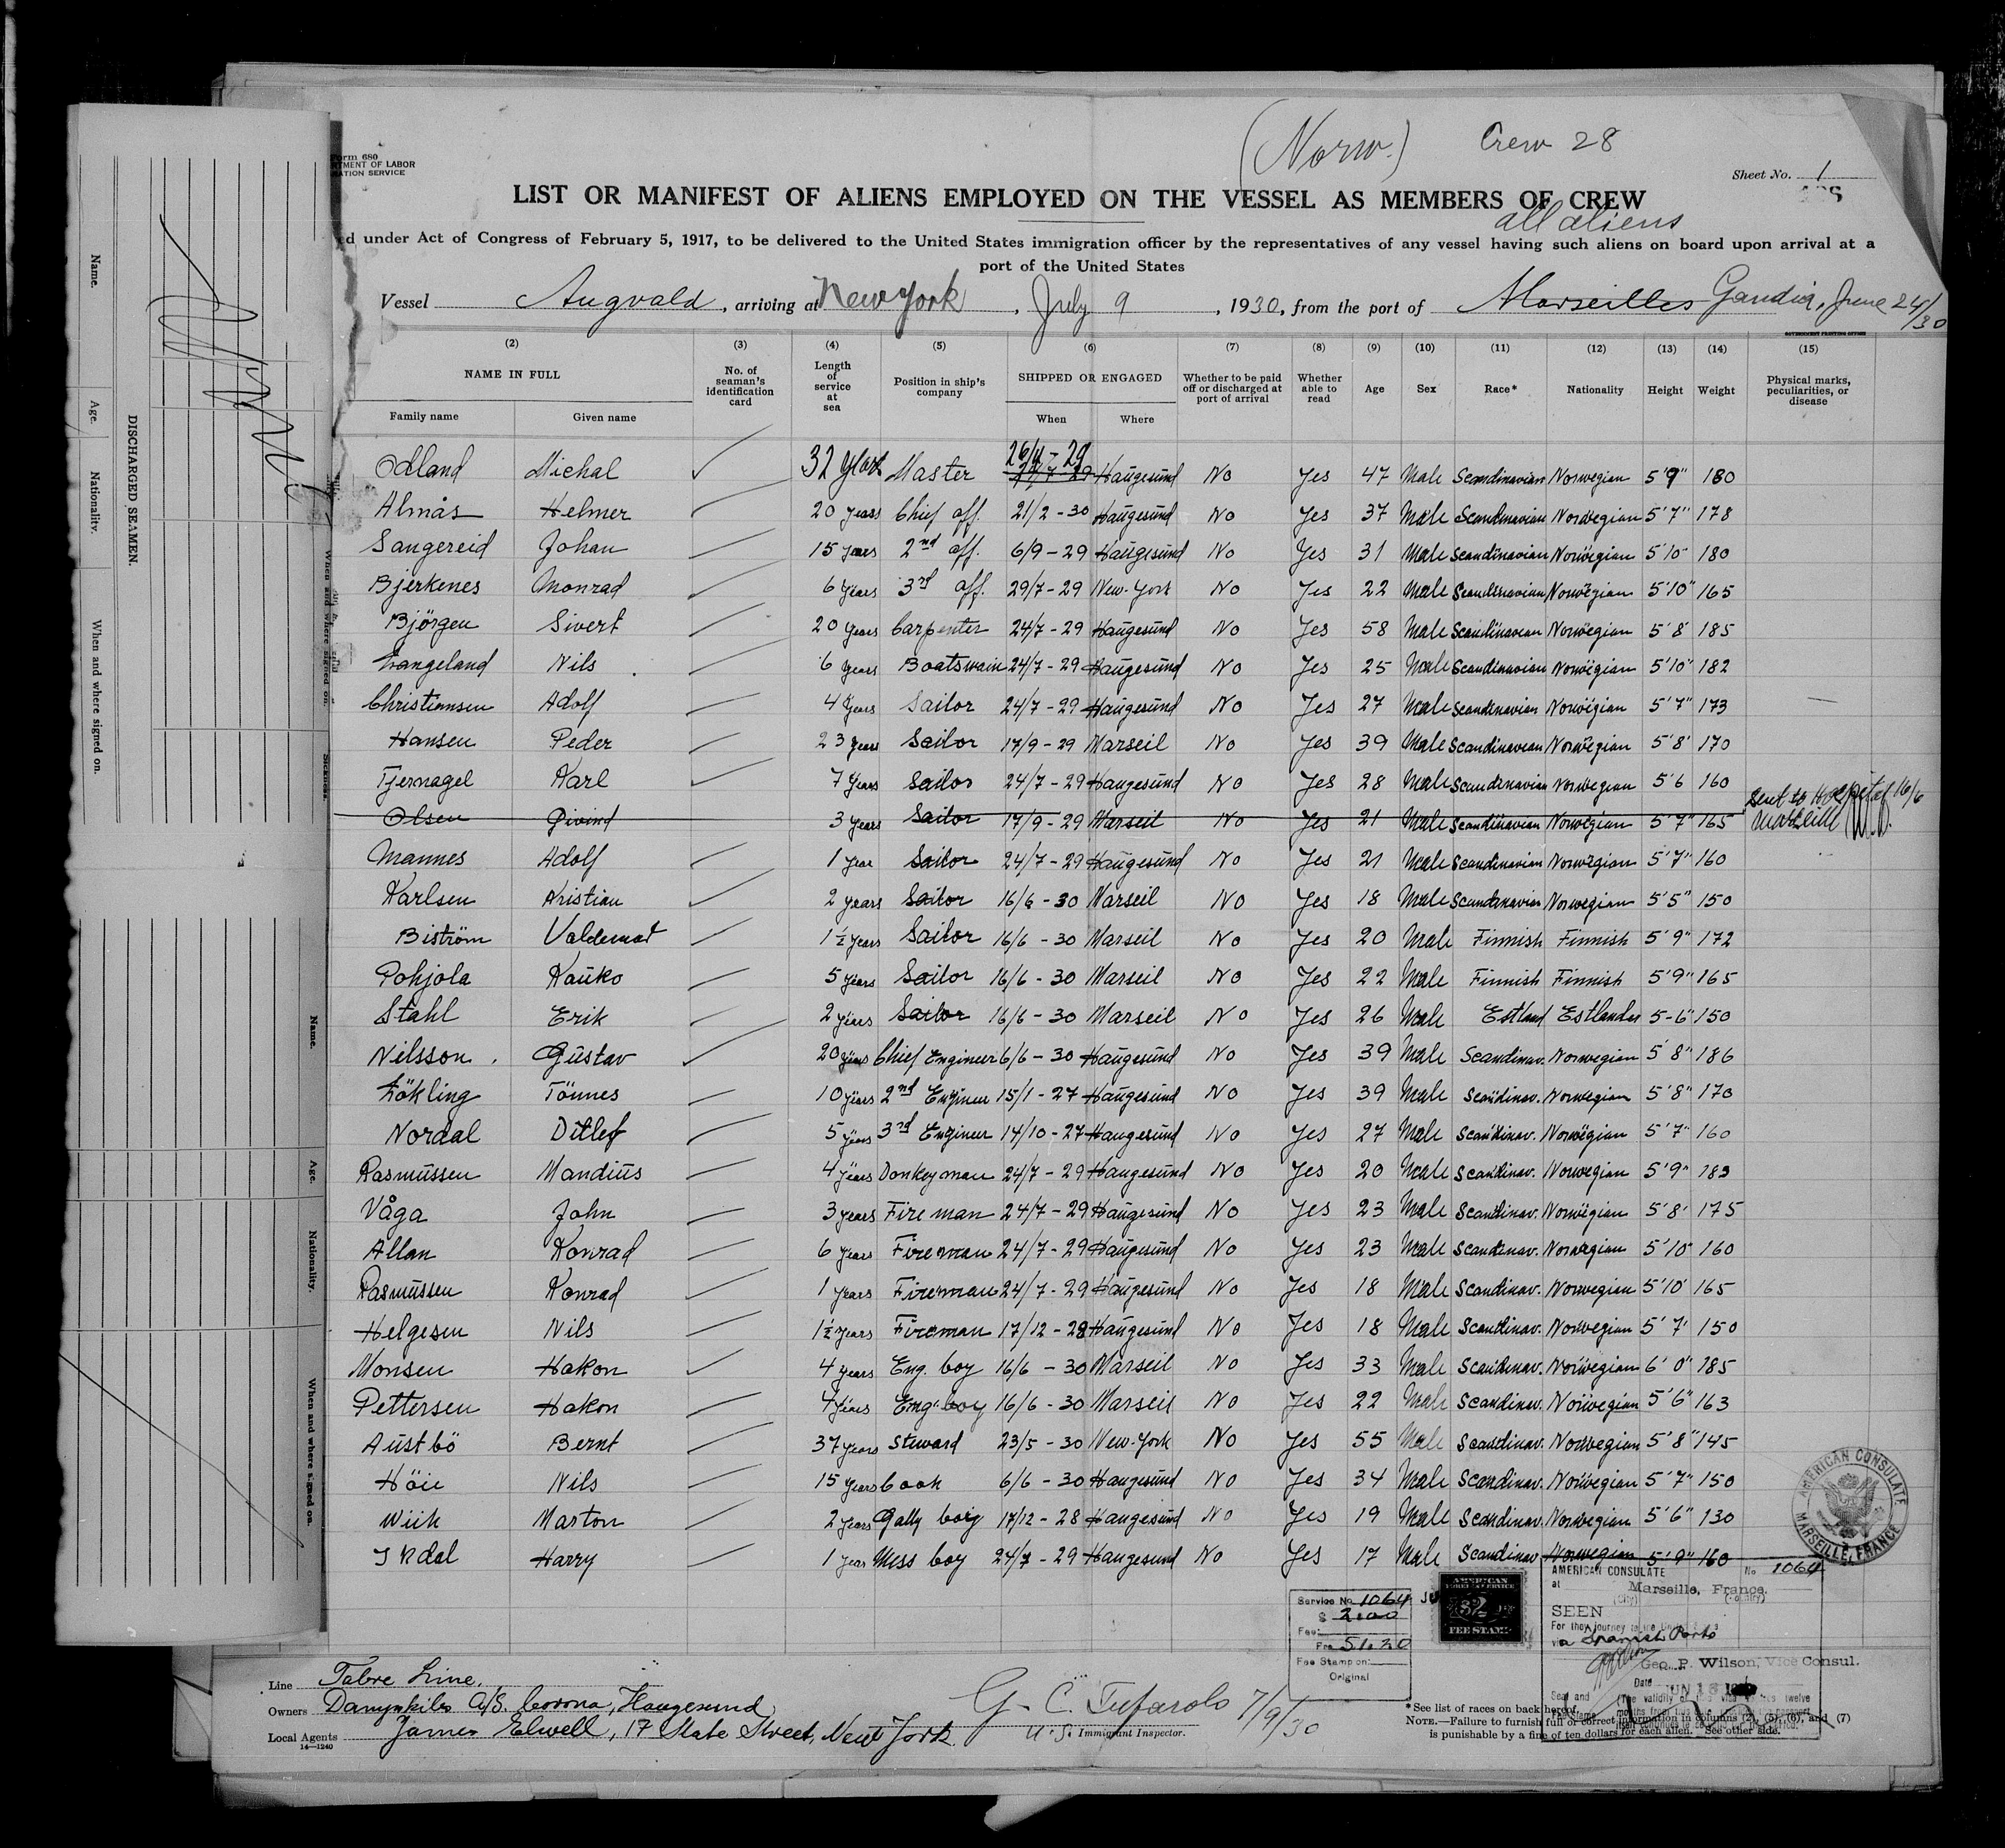 (Norw.) Crew 28
Form 680
DEPARTMENT OF LABOR
IMMIGRATION SERVICE
Sheet No. 1
LIST OR MANIFEST OF ALIENS EMPLOYED ON THE VESSEL AS MEMBERS OF CREW
all aliens
ed under Act of Congress of February 5, 1917, to be delivered to the United States immigration officer by the representatives of any vessel having such aliens on board upon arrival at a
port of the United States
Vessel Augvald, arriving at New York, July 9, 1930, from the port of Marseilles Gandia, June 24/30
(2) (3) (4) (5) (6) (7) (8) (9) (10) (11) (12) (13) (14) (15)
NAME IN FULL No. of seaman's identification card Length of service at sea Position in ship's company SHIPPED OR ENGAGED Whether to be paid off or discharged at port of arrival Whether able to read Age Sex Race* Nationality Height Weight Physical marks, peculiarities, or disease
Family name Given name When Where
26/4-29
Odland Michal 32 years Master 27/7-29 Haugesund No Yes 47 Male Scandinavian Norwegian 5'9" 180
Almås Helmer 20 years Chief off. 21/2-30 Haugesund No Yes 37 Male Scandinavian Norwegian 5'7" 178
Sangereid Johan 15 years 2nd off. 6/9-29 Haugesund No Yes 31 Male Scandinavian Norwegian 5'10" 180
Bjerkenes Monrad 6 years 3rd off. 29/7-29 New-York No Yes 22 Male Scandinavian Norwegian 5'10" 165
Björgen Sivert 20 years Carpenter 24/7-29 Haugesund No Yes 58 Male Scandinavian Norwegian 5'8' 185
Vangeland Nils 6 years Boatswain 24/7-29 Haugesund No Yes 25 Male Scandinavian Norwegian 5'10" 182
Christiansen Adolf 4 years Sailor 24/7-29 Haugesund No Yes 27 Male Scandinavian Norwegian 5'7" 173
Hansen Peder 23 years Sailor 17/9-29 Marseil No Yes 39 Male Scandinavian Norwegian 5'8' 170
Tjernagel Karl 7 years Sailor 24/7-29 Haugesund No Yes 28 Male Scandinavian Norwegian 5'6 160
Olsen Øivind 3 years Sailor 17/9-29 Marseil No Yes 21 Male Scandinavian Norwegian 5'7" 165 Sent to Hospital 16/6 Marseille
Mannes Adolf 1 year Sailor 24/7-29 Haugesund No Yes 21 Male Scandinavian Norwegian 5'7" 160
Karlsen Kristian 2 years Sailor 16/6-30 Marseil No Yes 18 Male Scandinavian Norwegian 5'5" 150
Biström Valdemar 1½ years Sailor 16/6-30 Marseil No Yes 20 Male Finnish Finnish 5'9" 172
Pohjola Kauko 5 years Sailor 16/6-30 Marseil No Yes 22 Male Finnish Finnish 5'9" 165
Stahl Erik 2 years Sailor 16/6-30 Marseil No Yes 26 Male Estland Estlander 5-6" 150
Nilsson Gustav 20 years Chief Engineer 6/6-30 Haugesund No Yes 39 Male Scandinav. Norwegian 5'8" 186
Lökling Tönnes 10 years 2nd Engineer 15/1-27 Haugesund No Yes 39 Male Scandinav. Norwegian 5'8" 170
Nordal Ditlef 5 years 3rd Engineer 14/10-27 Haugesund No Yes 27 Male Scandinav. Norwegian 5'7" 160
Rasmussen Mandius 4 years Donkeyman 24/7-29 Haugesund No Yes 20 Male Scandinav. Norwegian 5'9" 183
Våga John 3 years Fireman 24/7-29 Haugesund No Yes 23 Male Scandinav. Norwegian 5'8' 175
Allan Konrad 6 years Fireman 24/7-29 Haugesund No Yes 23 Male Scandinav. Norwegian 5'10" 160
Rasmussen Konrad 1 years Fireman 24/7-29 Haugesund No Yes 18 Male Scandinav. Norwegian 5'10' 165
Helgesen Nils 1½ years Fireman 17/12-28 Haugesund No Yes 18 Male Scandinav. Norwegian 5'7' 150
Monsen Hakon 4 years Eng. boy 16/6-30 Marseil No Yes 33 Male Scandinav. Norwegian 6'0" 185
Pettersen Hakon 4 years Eng. boy 16/6-30 Marseil No Yes 22 Male Scandinav. Norwegian 5'6" 163
Austbö Bernt 37 years Steward 23/5-30 New-York No Yes 55 Male Scandinav. Norwegian 5'8" 145
Höie Nils 15 years Cook 6/6-30 Haugesund No Yes 34 Male Scandinav. Norwegian 5'7" 150
Wiik Marton 2 years Gally boy 17/12-28 Haugesund No Yes 19 Male Scandinav. Norwegian 5'6" 130
Harry 1 year Mess boy 24/7-29 Haugesund No Yes 17 Male Scandinav Norwegian 5'9" 160
AMERICAN CONSULATE
MARSEILLE, FRANCE
Service No 1064
$ 2.00
Fee:
Frs 51.20
Fee Stamp on:
Original
AMERICAN
FOREIGN SERVICE
$2
FEE STAMP
AMERICAN CONSULATE No 1064
at Marseille, France.
(City) (Country)
SEEN
For the journey to the United States
via Spanish Ports
Geo. P. Wilson, Vice Consul.
Date JUN 18
Seal and
Line Fabre Line.
Owners Dampskibs A/S. Corona, Haugesund
Local Agents James Elwell, 17 State Street, New York.
14—1240
G. C. Tufarolo 7/9/30
U. S. Immigrant Inspector.
*See list of races on back hereof.
NOTE.—Failure to furnish full or correct information in columns (2), (5), (6), and (7)
is punishable by a fine of ten dollars for each alien. See other side.
DISCHARGED SEAMEN.
Name. Age. Nationality. When and where signed on.
When and where signed on. Sickness.
Name. Age. Nationality. When and where signed on.